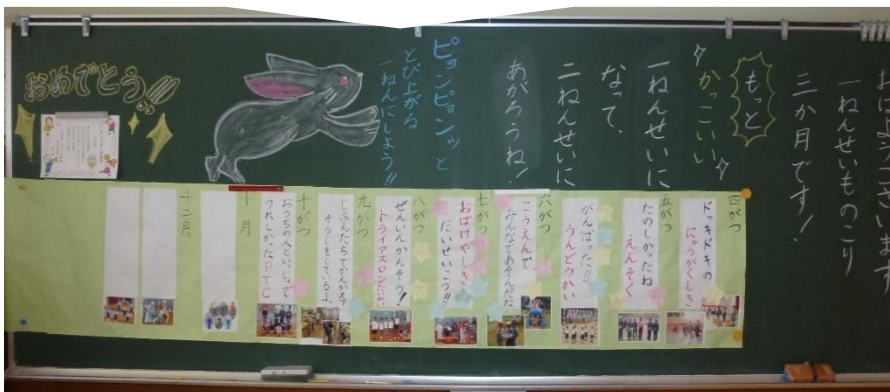 おはようございます
一ねんせいものこり
三か月です!
もっと
かっこいい
一ねんせいに
なって、
二ねんせいに
あがろうね!
ピョンピョンッと
とび上がる
一ねんにしよう!!
おめでとう!!
四がつ
ドッキドキの
にゅうがくしき
五がつ
たのしかったね
えんそく
がんばった!!
うんどうかい
六がつ
こうえんで
みんなであそんだね
七がつ
おばけやしき
だいせいこう!!
八がつ
ぜんいんかんそう!
トライアスロンたいかい
九がつ
じぶんたちでかんがえて
そうじをしているよ
十がつ
おうちの人といっしょで
うれしかったPTC
十一月
十二月